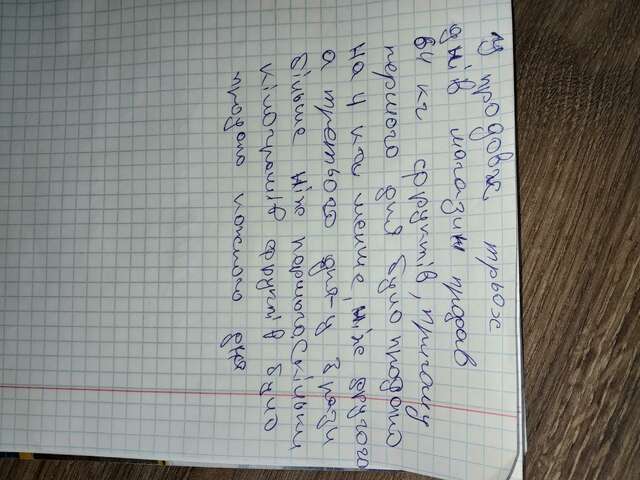 упродовж трьох
днів магазин продав
64 кг фруктів, причому
першого дня було продано
на 4 кг менше, ніж другого
а третього дня-у 3 рази
більше ніж першого. Скільки
кілограмів фруктів було
продано кожного дня